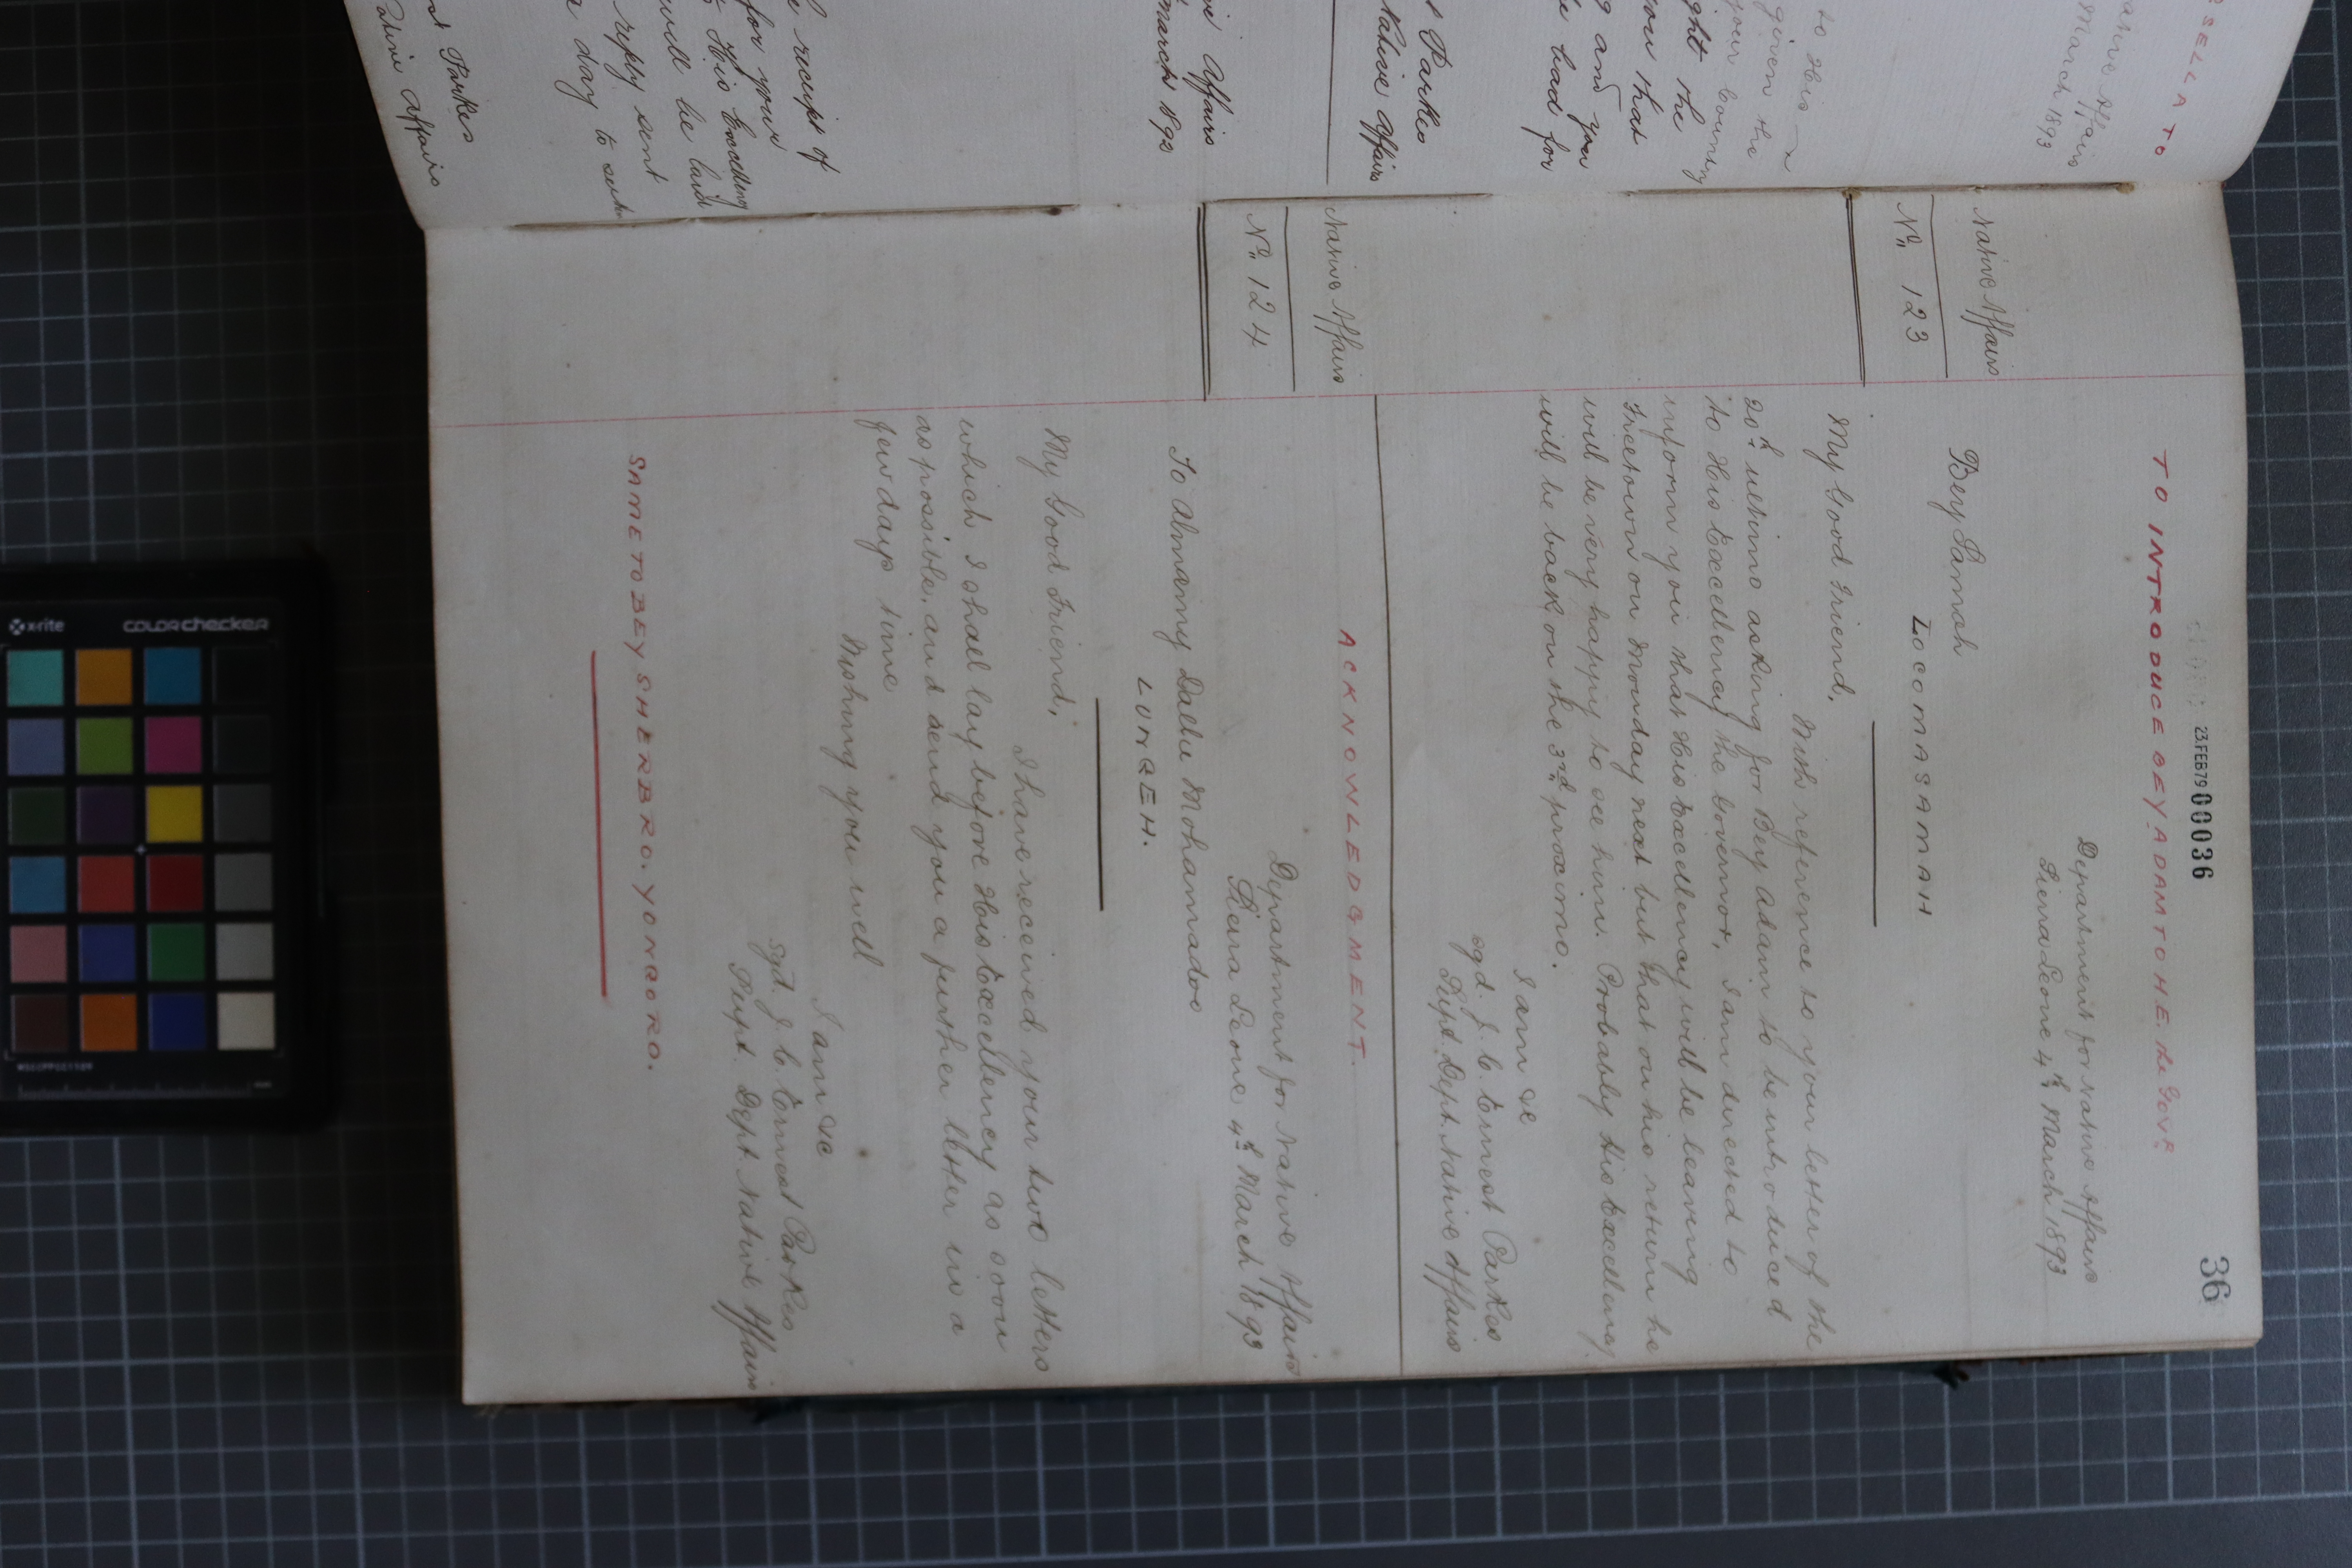 36
23 FEB 79 00036
TO INTRODUCE BEY ADAM TO H.E. the Govr
Department for Native Affairs
Sierra Leone 4th March 1893
Native Affairs
No 123
Bey Samah
LOCOMASAMAH
My Good Friend,
With reference to your letter of the
20th ultimo asking for Bey Adam to be introduced
to His Excellency the Governor, I am directed to
inform you that His Excellency will be leaving
Freetown on Monday next but that on his return he
will be very happy to see him. Probably His Excellency
will be back on the 3rd proximo.
I am &c
sgd. J. C. Ernest Parkes
Supt. Dept. Native Affairs
ACKNOWLEDGMENT.
Native Affairs
No 124
Department for Native Affairs
Sierra Leone 4th March 1893
To Almamy Dallu Mohamadoo
LUNGEH.
My Good Friend,
I have received your two letters
which I shall lay before His Excellency as soon
as possible, and send you a further letter in a
few days time
Wishing you well
I am &c
sgd. J. C. Ernest Parkes
Supt. Dept. Native Affairs
SAME TO BEY SHERBRO. YONGORO.
SELLA TO
March 1893
to His
given the
your country
ght the
you that
g and you
be had for
Parkes
Native Affairs
Affairs
March 1893
receipt of
for your
His Excellency
will be laid
reply sent
day to
Parkes
Native Affairs
x-rite
colorchecker